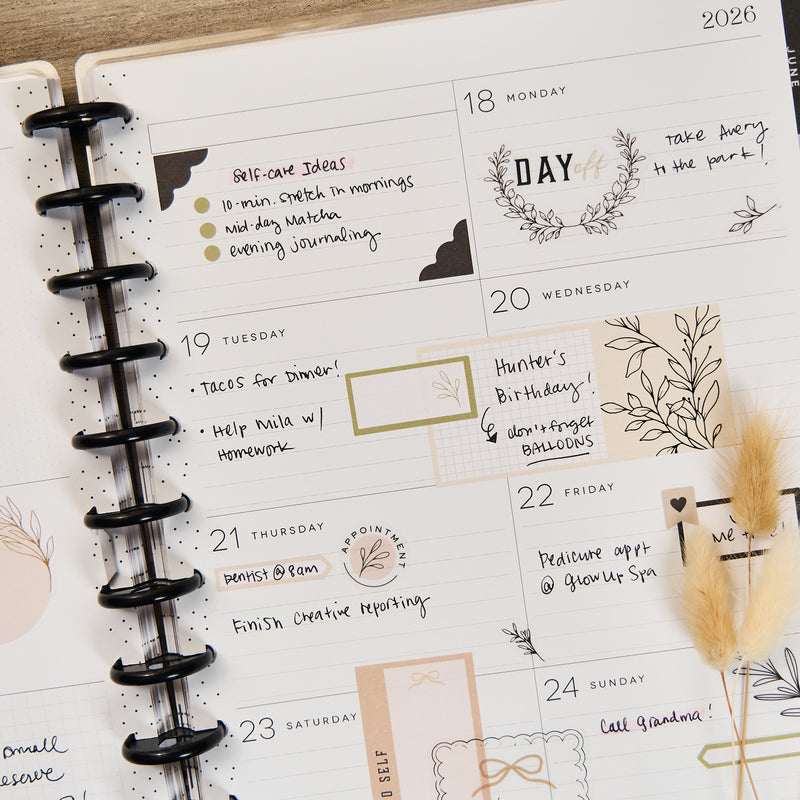 2026
JUNE
18 MONDAY
DAY off
Take Avery
to the park!
Self-care Ideas
10-min. stretch in mornings
mid-day Matcha
evening journaling
19 TUESDAY
• Tacos for Dinner!
• Help Mila w/
Homework
20 WEDNESDAY
Hunter's
Birthday!
don't forget
BALLOONS
21 THURSDAY
Dentist @ 8am
APPOINTMENT
Finish Creative reporting
22 FRIDAY
Me
Pedicure appt
@ GlowUp Spa
23 SATURDAY
SELF
24 SUNDAY
Call grandma!
small